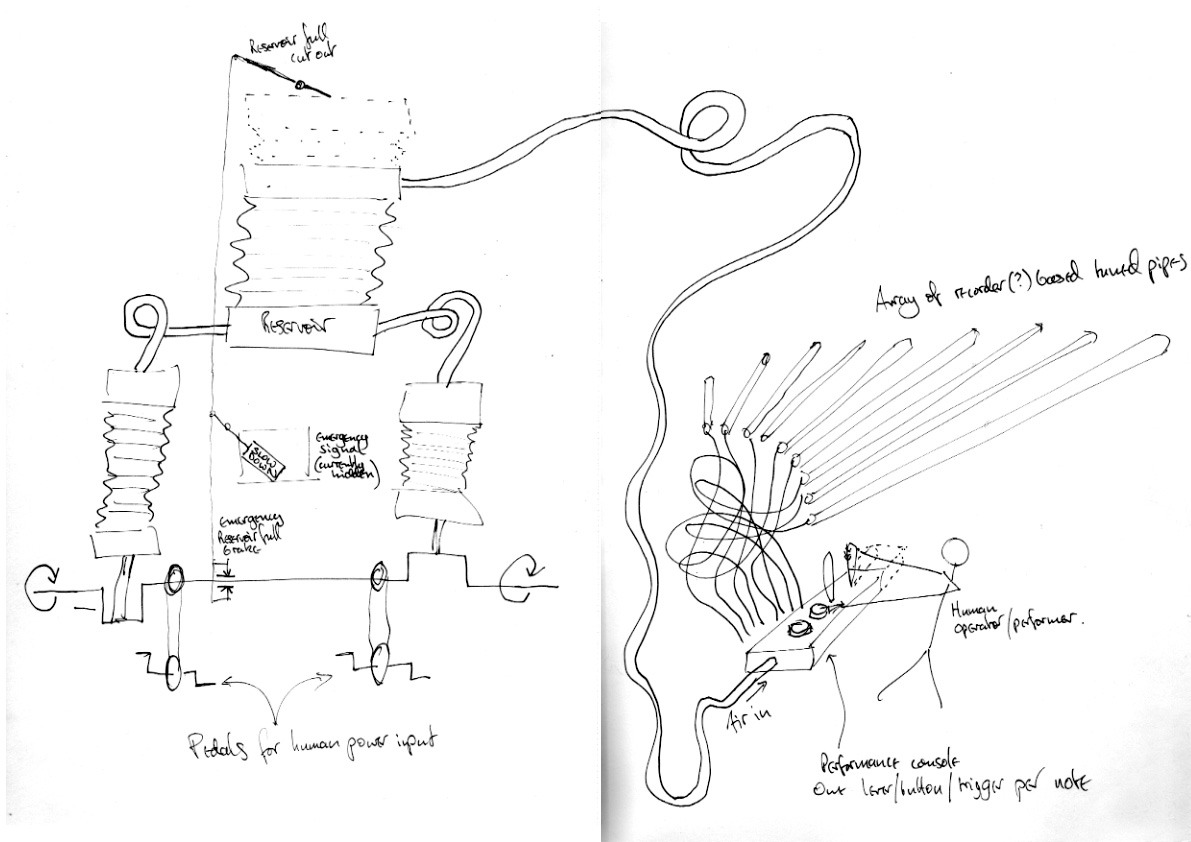 Reservoir full
cut out
Reservoir
SLOW
DOWN
Emergency
signal
(currently
hidden)
Emergency
Reservoir full
brake
Pedals for human power input
Array of recorder(?) based tuned pipes
Human
operator/performer.
Air in
Performance console
One lever/button/trigger per note